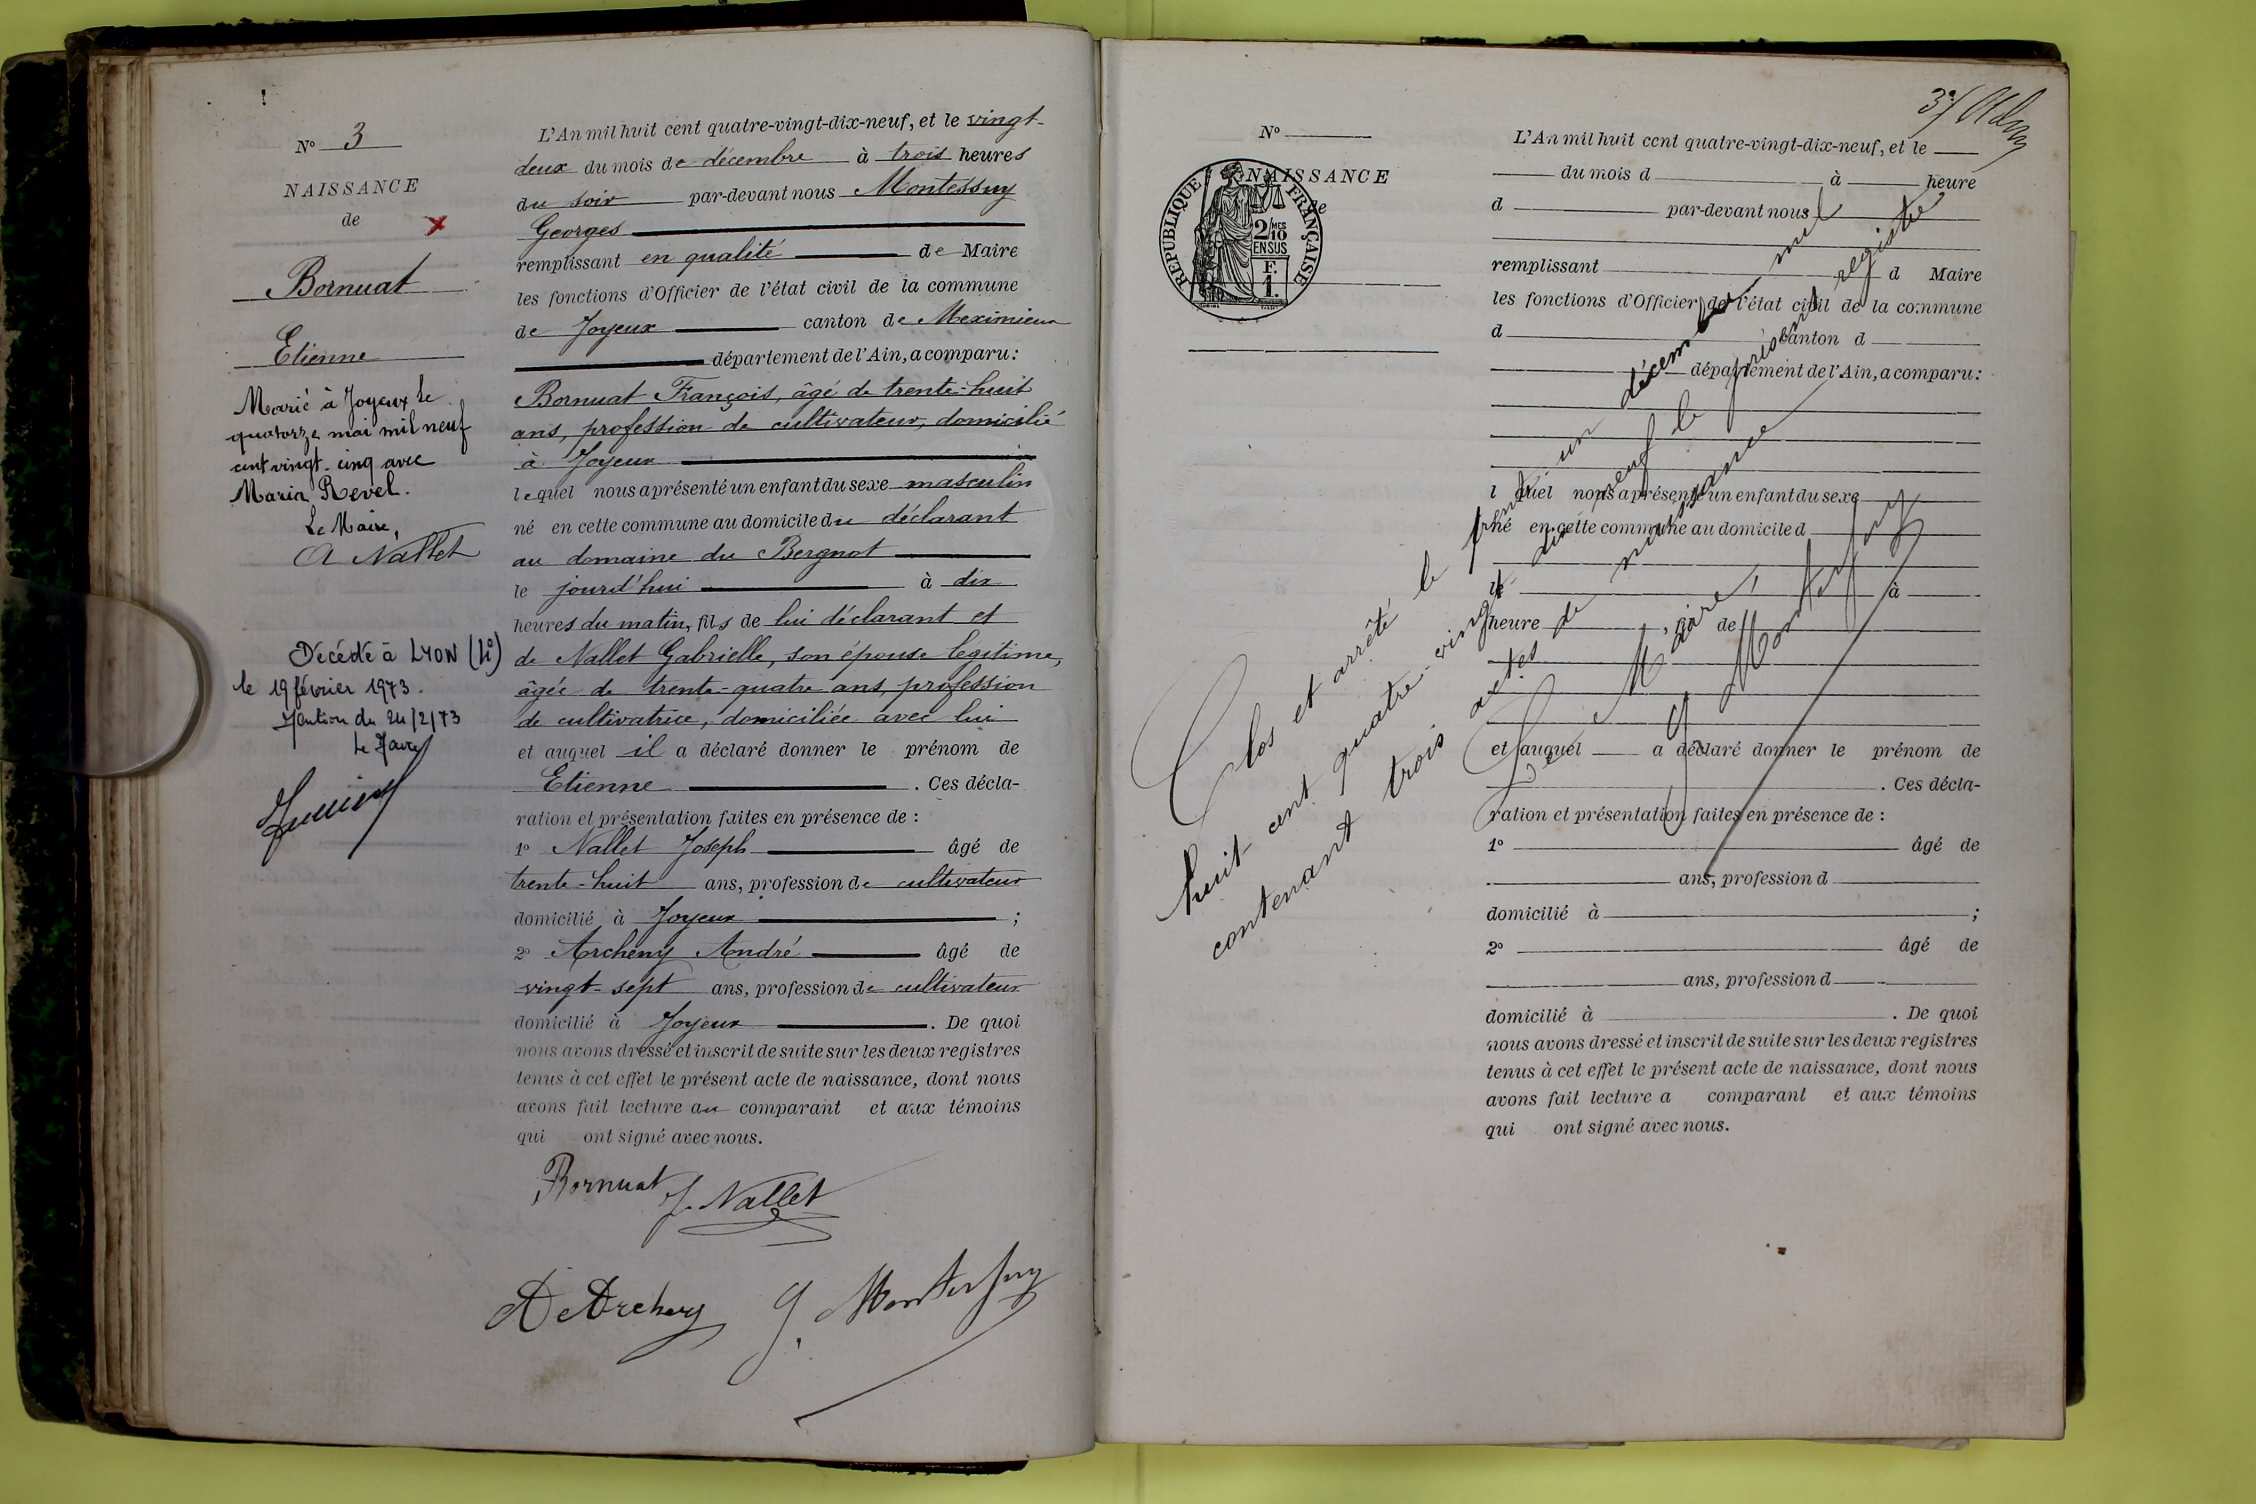 N° 3
NAISSANCE
de
Bornuat
Etienne
Marié à Joyeux le
quatorze mai mil neuf
cent vingt-cinq avec
Maria Revel.
Le Maire,
A Nallet
Décédé à LYON (4°)
le 19 février 1973.
Mention du 24/2/73
Le Maire
L'An mil huit cent quatre-vingt-dix-neuf, et le vingt-
deux du mois de décembre à trois heures
du soir par-devant nous Montessuy
Georges
remplissant en qualité de Maire
les fonctions d'Officier de l'état civil de la commune
de Joyeux canton de Meximieux
département de l'Ain, a comparu :
Bornuat François, âgé de trente-huit
ans, profession de cultivateur, domicilié
à Joyeux
lequel nous a présenté un enfant du sexe masculin
né en cette commune au domicile du déclarant
au domaine du Bergnot
le jourd'hui à dix
heures du matin, fils de lui déclarant et
de Nallet Gabrielle, son épouse legitime,
âgée de trente-quatre ans, profession
de cultivatrice, domiciliée avec lui
et auquel il a déclaré donner le prénom de
Etienne . Ces décla-
ration et présentation faites en présence de :
1° Nallet Joseph âgé de
trente-huit ans, profession de cultivateur
domicilié à Joyeux ;
2° Archeny André âgé de
vingt-sept ans, profession de cultivateur
domicilié à Joyeux . De quoi
nous avons dressé et inscrit de suite sur les deux registres
tenus à cet effet le présent acte de naissance, dont nous
avons fait lecture au comparant et aux témoins
qui ont signé avec nous.
Bornuat
J. Nallet
A Archeny
G. Montessuy
N°
NAISSANCE
de
RÉPUBLIQUE FRANÇAISE
2/10 MES
EN SUS
F.
1.
L'An mil huit cent quatre-vingt-dix-neuf, et le
du mois d à heure
d par-devant nous
remplissant d Maire
les fonctions d'Officier de l'état civil de la commune
d canton d
département de l'Ain, a comparu :
l quel nous a présenté un enfant du sexe
né en cette commune au domicile d
le à
heure , fil de
et auquel a déclaré donner le prénom de
. Ces décla-
ration et présentation faites en présence de :
1° âgé de
ans, profession d
domicilié à ;
2° âgé de
ans, profession d
domicilié à . De quoi
nous avons dressé et inscrit de suite sur les deux registres
tenus à cet effet le présent acte de naissance, dont nous
avons fait lecture a comparant et aux témoins
qui ont signé avec nous.
Clos et arrêté le trente un décembre mil
huit cent quatre-vingt dix neuf le présent registre
contenant trois actes de naissance
Le Maire,
G Montessuy